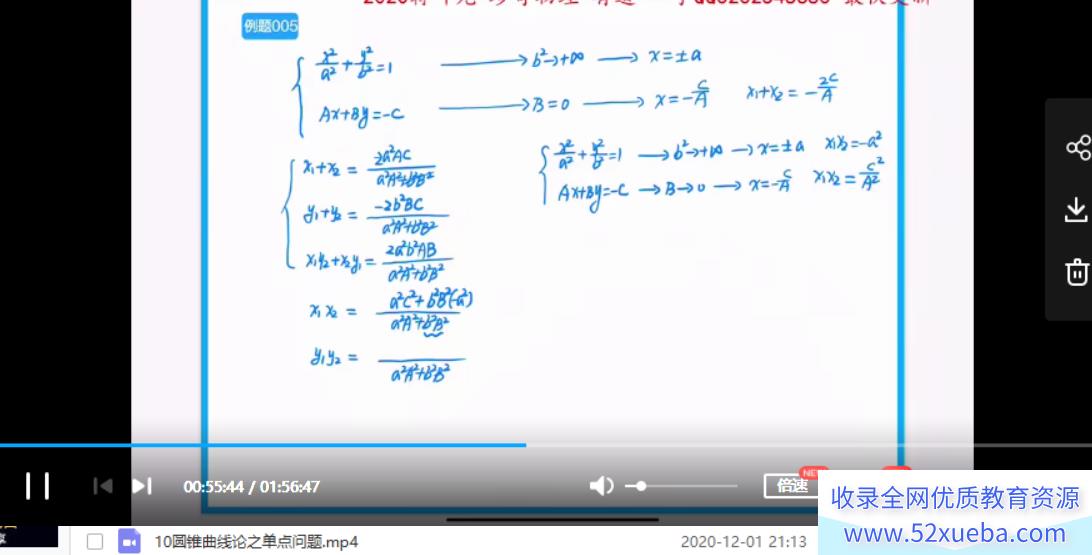 例题005
x²/a² + y²/b² = 1 ⟶ b²→+∞ ⟶ x = ±a
Ax+By=-C ⟶ B=0 ⟶ x = -C/A x₁+x₂ = -2C/A
x₁+x₂ = 2a²AC/(a²A²+b²B²)
x²/a² + y²/b² = 1 → b²→+∞ → x = ±a x₁x₂ = -a²
y₁+y₂ = -2b²BC/(a²A²+b²B²)
Ax+By=-C → B→0 → x = -C/A x₁x₂ = C²/A²
x₁y₂+x₂y₁ = 2a²b²AB/(a²A²+b²B²)
x₁x₂ = (a²C²+b²B²(-a²))/(a²A²+b²B²)
y₁y₂ = /(a²A²+b²B²)
00:55:44 / 01:56:47
倍速
NEW
收录全网优质教育资源
www.52xueba.com
享
10圆锥曲线论之单点问题.mp4
2020-12-01 21:13